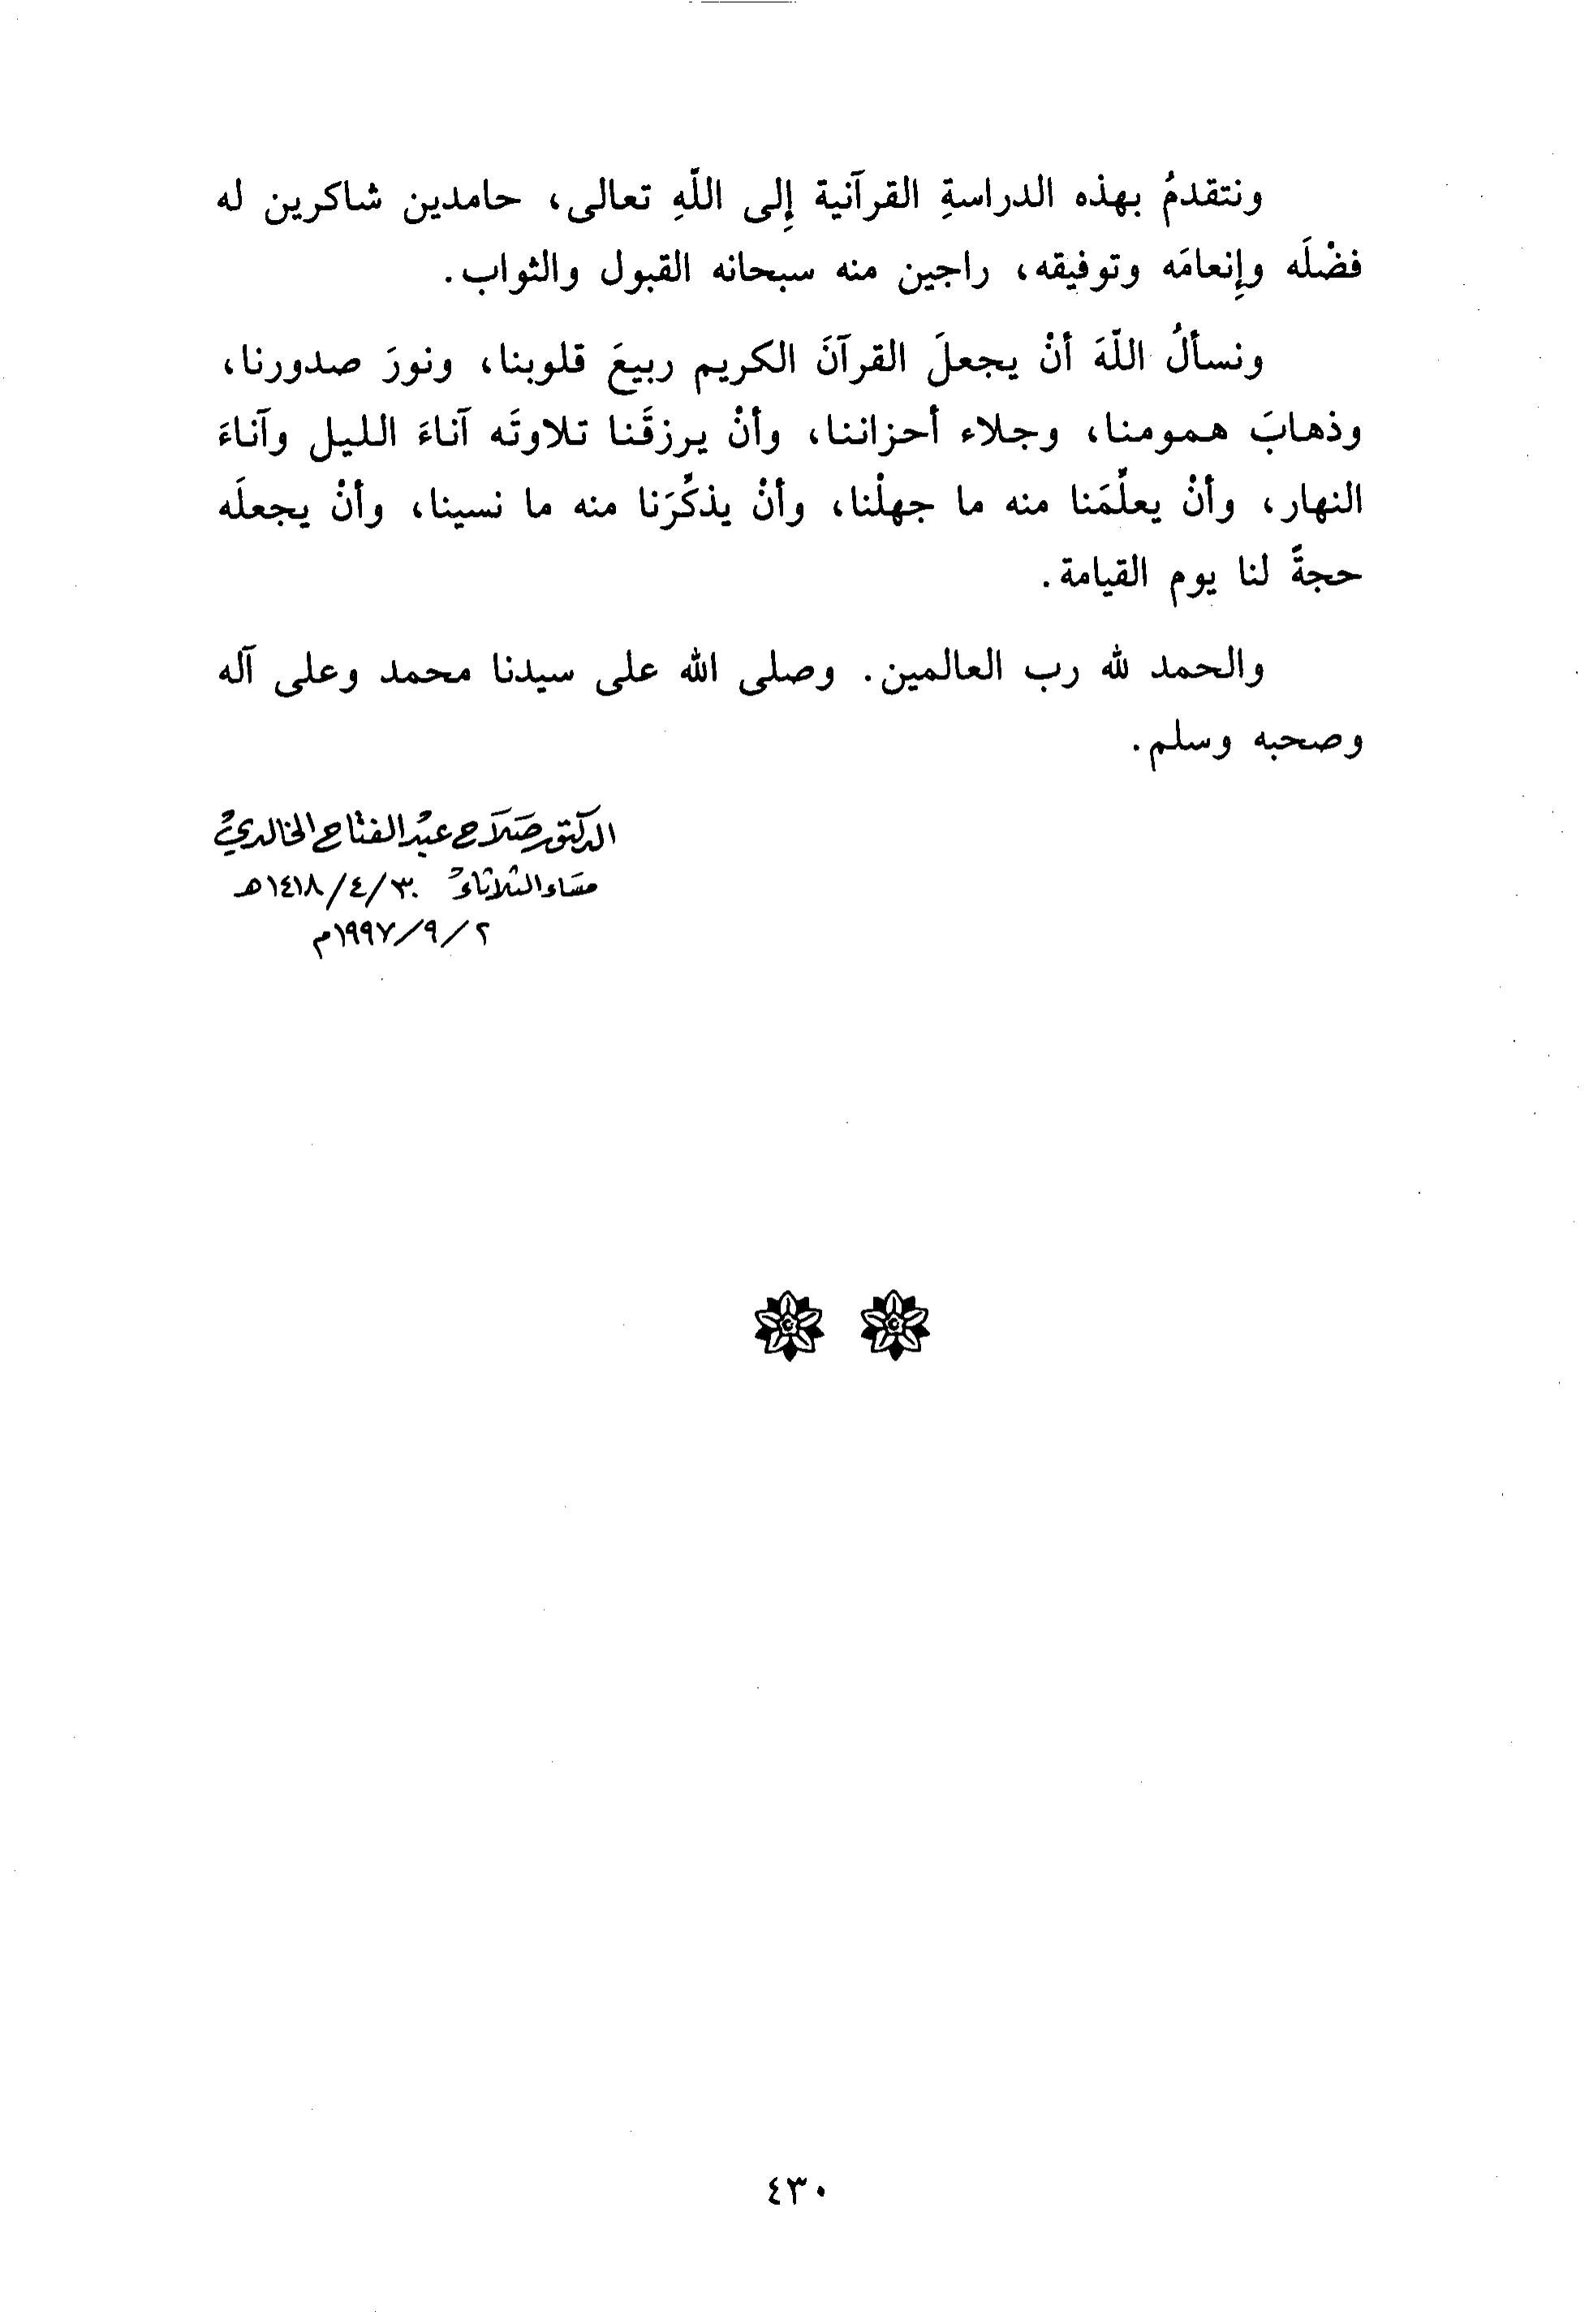 ونتقدمُ بهذه الدراسةِ القرآنية إِلى اللّهِ تعالى، حامدين شاكرين له
فضْلَه وإِنعامَه وتوفيقه، راجين منه سبحانه القبول والثواب.
ونسألُ اللّهَ أنْ يجعلَ القرآنَ الكريم ربيعَ قلوبنا، ونورَ صدورنا،
وذهابَ همومنا، وجلاء أحزاننا، وأنْ يرزقَنا تلاوتَه آناءَ الليل وآناءَ
النهار، وأنْ يعلِّمَنا منه ما جهلْنا، وأنْ يذكِّرَنا منه ما نسينا، وأنْ يجعلَه
حجةً لنا يوم القيامة.
والحمد لله رب العالمين. وصلى الله على سيدنا محمد وعلى آله
وصحبه وسلم.
الدكتور صَلَاح عَبْد الفتاح الخالدي
مسَاء الثلاثاء ٣٠/٤/١٤١٨هـ
٢/٩/١٩٩٧م
٤٣٠